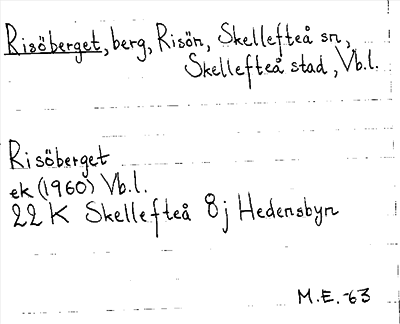 Risöberget, berg, Risön, Skellefteå sn,
Skellefteå stad, Vb.l.
Risöberget
ek (1960) Vb.l.
22 K Skellefteå 8j Hedensbyn
M.E. -63